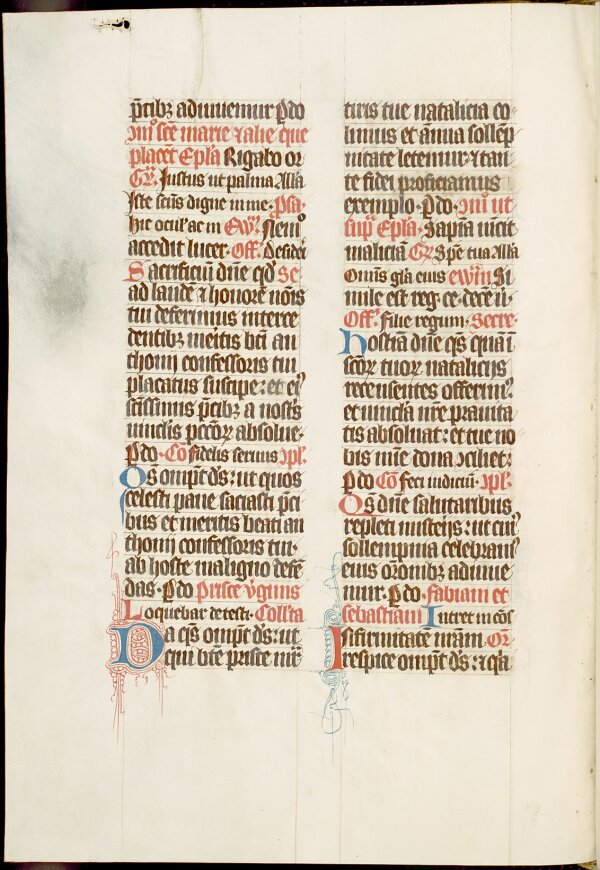 p̄cibꝫ adiuuemur P̲do
ꝯm̄o sc̄e marie ⁊ alie que
placēt Ep̄la Rigabo or
Gͬ. Justus ut palma All̄a
Iste sc̄us digne in me. Psa̅
hic oculꝰ ac in Ewͫ. Nemo
accedit lucer. Off. Desideri
Sacrificiū dn̄e qd̄ Se
ad laudē ⁊ honorē nōis
tui deferimus interce
dentibꝫ meritis bt̄i an
thonij confessoris tui
placatus suscipe: et eiꝰ
sc̄issimis p̄cibꝫ a nostͥs
iunctis pccōꝝ absolue.
P̲do. Co Fidelis seruus ꝯpl.
Qs̄ omp̄t ds̄: ut quos
celesti pane saciasti p̄ci
bus et meritis beati an
thonij confessoris tui.
ab hoste maligno defē
das. P̲do Prisce v̄ginis
Loquebar de testi. Coll̄ta
Da qs̄ omp̄t ds̄: ut
qui bt̄e prisce mr̄
tiris tue natalicia co
limus et ānua sollēp
nitate letemur. ⁊ tan
te fidei proficiamus
exemplo. P̲do. ꝯm̄o ut
sup̲ Ep̄la. Sap̄ia uīcit
maliciā Gͬ Spē tua All̄a
Omīs gl̄a eius ewm̄ Si
mile est reg. ce. decē v̄.
Off. Filie regum. Secre.
Hostia dn̄e qs̄ quā ī
sc̄oꝝ tuoꝝ natalicijs
recensentes offerimꝰ
et uincla nr̄e prauita
tis absoluat: et tue no
bis mīe dona ꝯciliet:
P̲do Co Feci iudiciū. ꝯpl.
Qs̄ dn̄e salutaribus
repleti misterijs: ut cuiꝰ
sollempnia celebramꝰ
eius or̄onibꝫ adiuue
mur. P̲do. Fabiani et
sebastiani Intret in cōs
Infirmitatē nr̄am Or̄
respice omp̄t ds̄: ⁊ q̄a